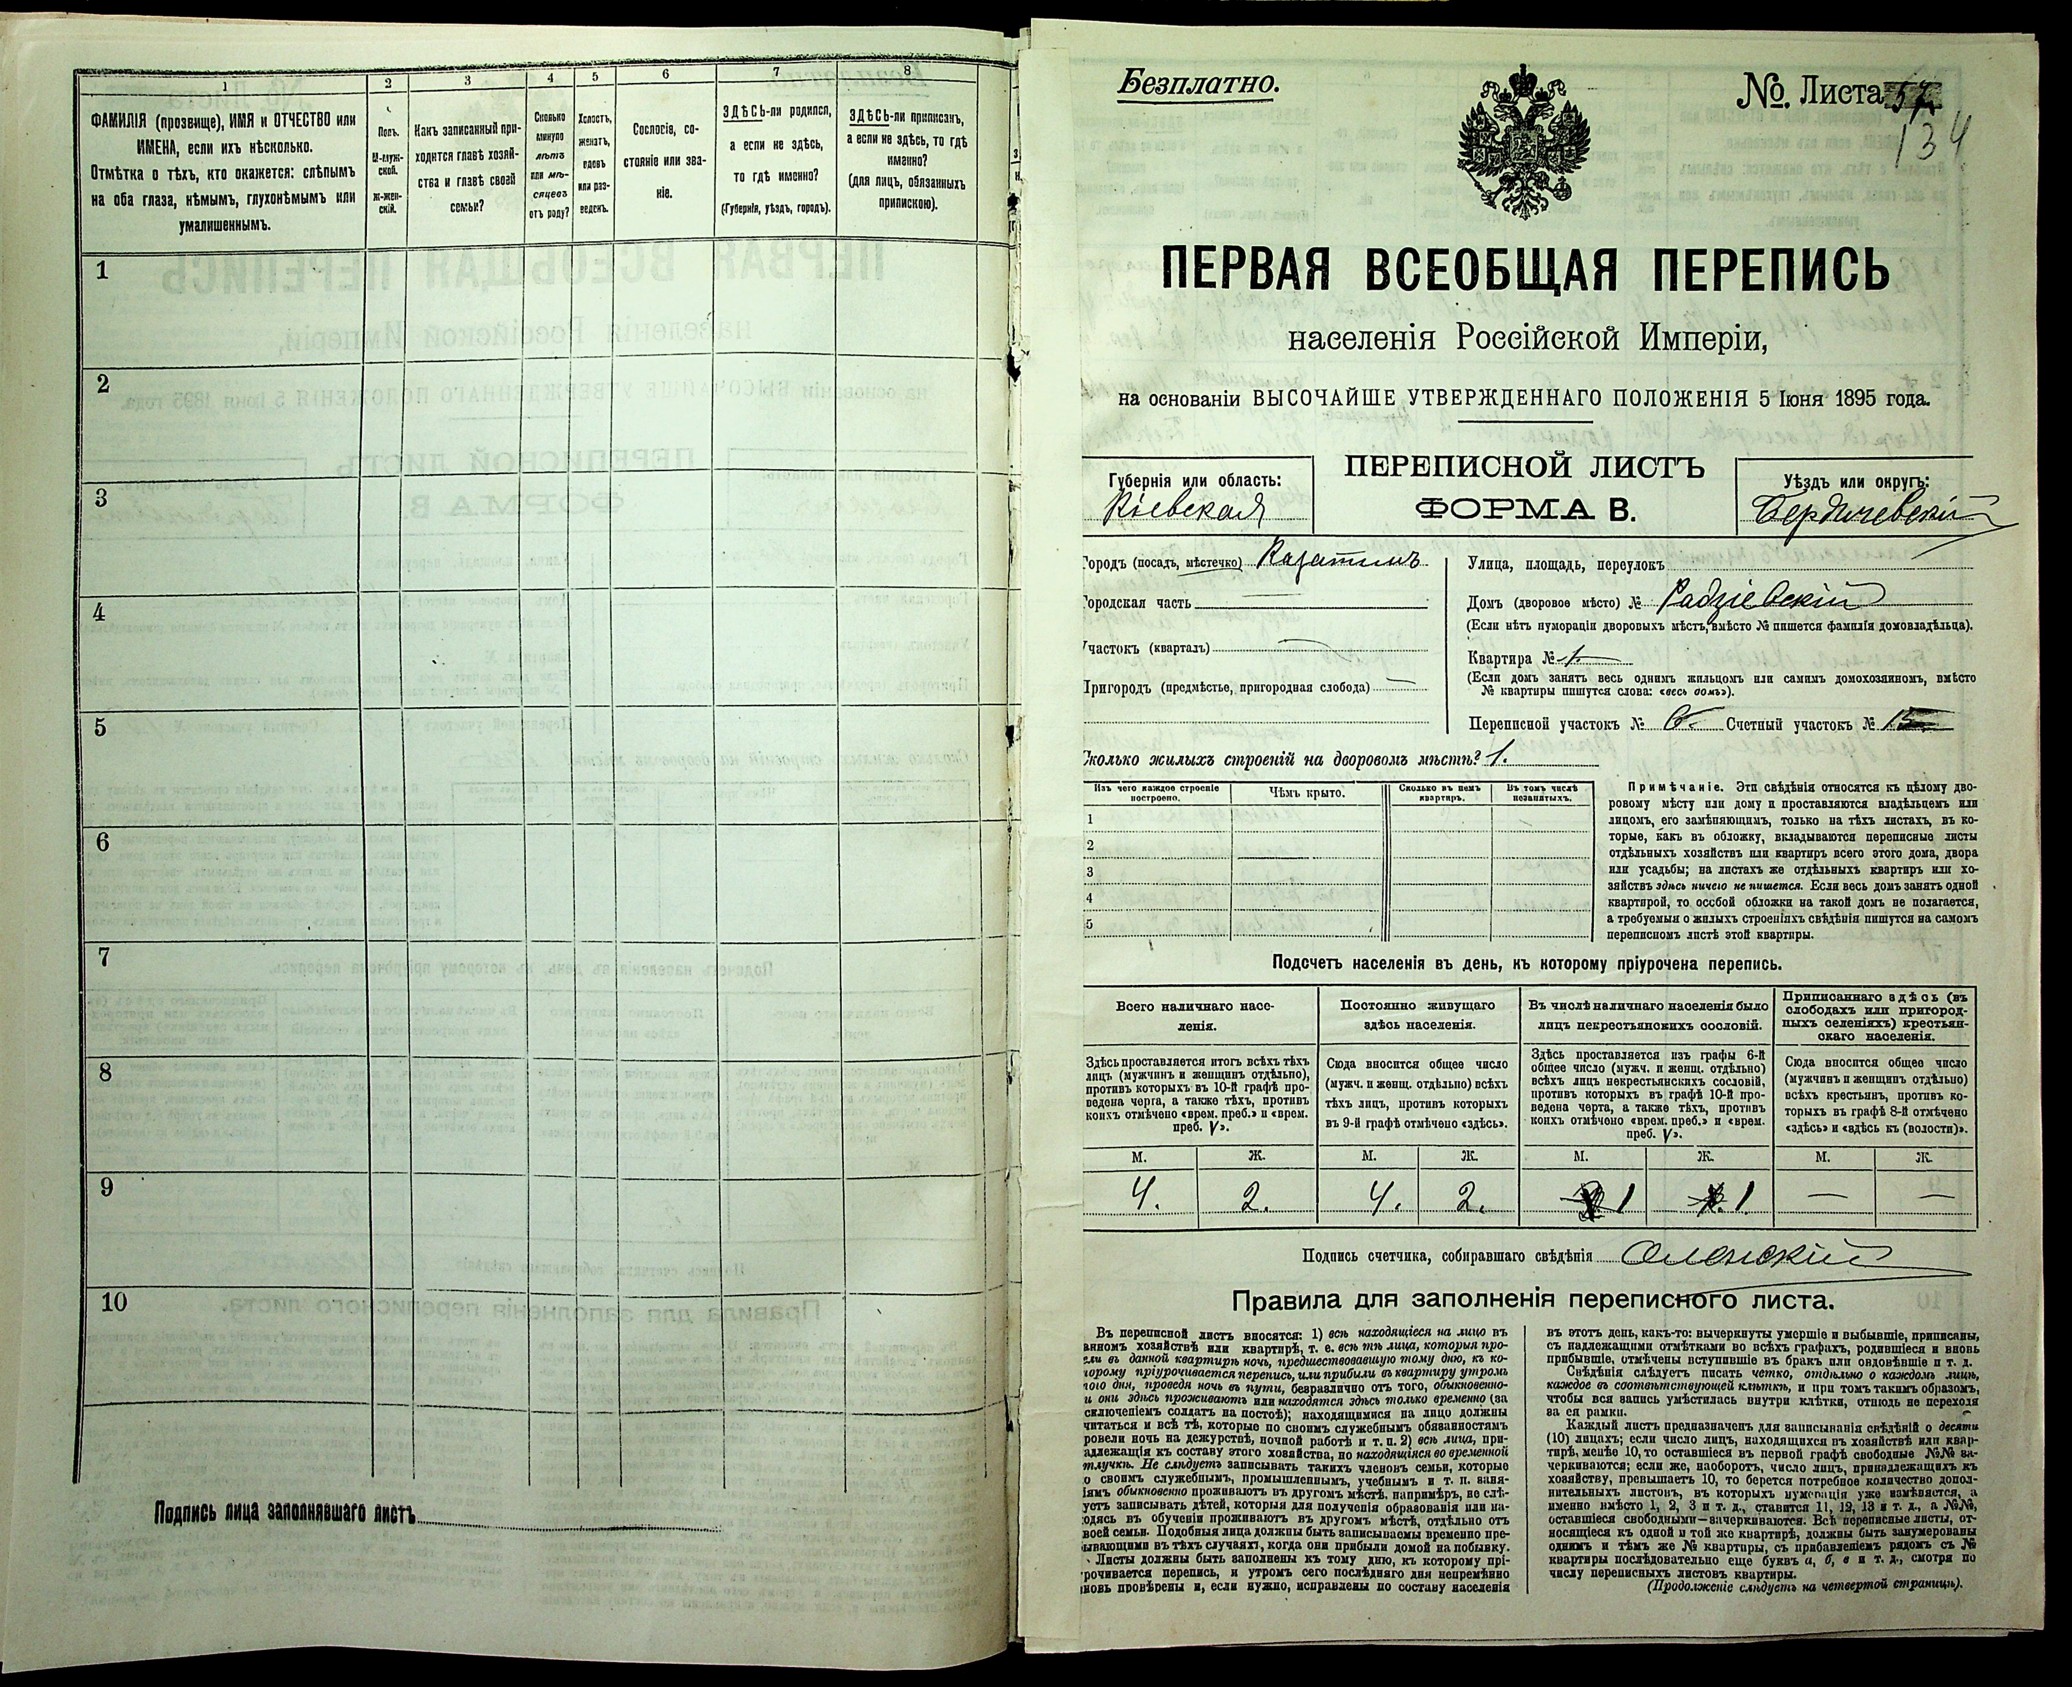 1
2
3
4
5
6
7
8
ФАМИЛІЯ (прозвище), ИМЯ и ОТЧЕСТВО или
ИМЕНА, если ихъ нѣсколько.
Отмѣтка о тѣхъ, кто окажется: слѣпымъ
на оба глаза, нѣмымъ, глухонѣмымъ или
умалишеннымъ.
Полъ.
М-муж-
ской.
Ж-жен-
скій.
Какъ записанный при-
ходится главѣ хозяй-
ства и главѣ своей
семьи?
Сколько
минуло
лѣтъ
или мѣ-
сяцевъ
отъ роду?
Холостъ,
женатъ,
вдовъ
или раз-
веденъ.
Сословіе, со-
стояніе или зва-
ніе.
ЗДѢСЬ-ли родился,
а если не здѣсь,
то гдѣ именно?
(Губернія, уѣздъ, городъ).
ЗДѢСЬ-ли приписанъ,
а если не здѣсь, то гдѣ
именно?
(для лицъ, обязанныхъ
припискою).
1
2
3
4
5
6
7
8
9
10
Подпись лица заполнявшаго листъ
Безплатно.
№. Листа 57
134
ПЕРВАЯ ВСЕОБЩАЯ ПЕРЕПИСЬ
населенія Россійской Имперіи,
на основаніи ВЫСОЧАЙШЕ УТВЕРЖДЕННАГО ПОЛОЖЕНІЯ 5 Іюня 1895 года.
Губернія или область:
Кіевская
ПЕРЕПИСНОЙ ЛИСТЪ
ФОРМА В.
Уѣздъ или округъ:
Бердичевскій
Городъ (посадъ, мѣстечко) Казатинъ
Городская часть
Участокъ (кварталъ)
Пригородъ (предмѣстье, пригородная слобода)
Улица, площадь, переулокъ
Домъ (дворовое мѣсто) № Радзіевскій
(Если нѣтъ нумораціи дворовыхъ мѣстъ, вмѣсто № пишется фамилія домовладѣльца).
Квартира № 1.
(Если домъ занятъ весь однимъ жильцомъ или самимъ домохозяиномъ, вмѣсто
№ квартиры пишутся слова: «весь домъ»).
Переписной участокъ № 6. Счетный участокъ № 15
Сколько жилыхъ строеній на дворовомъ мѣстѣ? 1.
Изъ чего каждое строеніе
построено.
Чѣмъ крыто.
Сколько въ немъ
квартиръ.
Въ томъ числѣ
незанятыхъ.
1
2
3
4
5
Примѣчаніе. Эти свѣдѣнія относятся къ цѣлому дво-
ровому мѣсту или дому и проставляются владѣльцемъ или
лицомъ, его замѣняющимъ, только на тѣхъ листахъ, въ ко-
торые, какъ въ обложку, вкладываются переписные листы
отдѣльныхъ хозяйствъ или квартиръ всего этого дома, двора
или усадьбы; на листахъ же отдѣльныхъ квартиръ или хо-
зяйствъ здѣсь ничего не пишется. Если весь домъ занятъ одной
квартирой, то особой обложки на такой домъ не полагается,
а требуемыя о жилыхъ строеніяхъ свѣдѣнія пишутся на самомъ
переписномъ листѣ этой квартиры.
Подсчетъ населенія въ день, къ которому пріурочена перепись.
Всего наличнаго насе-
ленія.
Постоянно живущаго
здѣсь населенія.
Въ числѣ наличнаго населенія было
лицъ некрестьянскихъ сословій.
Приписаннаго здѣсь (въ
слободахъ или пригород-
ныхъ селеніяхъ) крестьян-
скаго населенія.
Здѣсь проставляется итогъ всѣхъ тѣхъ
лицъ (мужчинъ и женщинъ отдѣльно),
противъ которыхъ въ 10-й графѣ про-
ведена черта, а также тѣхъ, противъ
коихъ отмѣчено «врем. преб.» и «врем.
преб. V».
Сюда вносится общее число
(мужч. и женщ. отдѣльно) всѣхъ
тѣхъ лицъ, противъ которыхъ
въ 9-й графѣ отмѣчено «здѣсь».
Здѣсь проставляется изъ графы 6-й
общее число (мужч. и женщ. отдѣльно)
всѣхъ лицъ некрестьянскихъ сословій,
противъ которыхъ въ графѣ 10-й про-
ведена черта, а также тѣхъ, противъ
коихъ отмѣчено «врем. преб.» и «врем.
преб. V».
Сюда вносится общее число
(мужчинъ и женщинъ отдѣльно)
всѣхъ крестьянъ, противъ ко-
торыхъ въ графѣ 8-й отмѣчено
«здѣсь» и «здѣсь къ (волости)».
М. Ж. М. Ж. М. Ж. М. Ж.
4. 2. 4. 2. 1 1. — —
Подпись счетчика, собиравшаго свѣдѣнія Оленскій
Правила для заполненія переписного листа.
Въ переписной листъ вносятся: 1) всѣ находящіеся на лицо въ
анномъ хозяйствѣ или квартирѣ, т. е. всѣ тѣ лица, которыя про-
ели въ данной квартирѣ ночь, предшествовавшую тому дню, къ ко-
торому пріурочивается перепись, или прибыли въ квартиру утромъ
того дня, проведя ночь въ пути, безразлично отъ того, обыкновенно-
и они здѣсь проживаютъ или находятся здѣсь только временно (за
сключеніемъ солдатъ на постоѣ); находящимися на лицо должны
читаться и всѣ тѣ, которые по своимъ служебнымъ обязанностямъ
ровели ночь на дежурствѣ, ночной работѣ и т. п. 2) всѣ лица, при-
адлежащія къ составу этого хозяйства, но находящіяся во временной
тлучкѣ. Не слѣдуетъ записывать такихъ членовъ семьи, которые
о своимъ служебнымъ, промышленнымъ, учебнымъ и т. п. заня-
іямъ обыкновенно проживаютъ въ другомъ мѣстѣ, напримѣръ, не слѣ-
уетъ записывать дѣтей, которыя для полученія образованія или на-
одясь въ обученіи проживаютъ въ другомъ мѣстѣ, отдѣльно отъ
воей семьи. Подобныя лица должны быть записываемы временно пре-
ывающими въ тѣхъ случаяхъ, когда они прибыли домой на побывку.
Листы должны быть заполнены къ тому дню, къ которому прі-
рочивается перепись, и утромъ сего послѣдняго дня непремѣнно
новь провѣрены и, если нужно, исправлены по составу населенія
въ этотъ день, какъ-то: вычеркнуты умершіе и выбывшіе, приписаны,
съ надлежащими отмѣтками во всѣхъ графахъ, родившіеся и вновь
прибывшіе, отмѣчены вступившіе въ бракъ или овдовѣвшіе и т. д.
Свѣдѣнія слѣдуетъ писать четко, отдѣльно о каждомъ лицѣ,
каждое въ соотвѣтствующей клѣткѣ, и при томъ такимъ образомъ,
чтобы вся запись умѣстилась внутри клѣтки, отнюдь не переходя
за ея рамки.
Каждый листъ предназначенъ для записыванія свѣдѣній о десяти
(10) лицахъ; если число лицъ, находящихся въ хозяйствѣ или квар-
тирѣ, менѣе 10, то оставшіеся въ первой графѣ свободные №№ за-
черкиваются; если же, наоборотъ, число лицъ, принадлежащихъ къ
хозяйству, превышаетъ 10, то берется потребное количество допол-
нительныхъ листовъ, въ которыхъ нумерація уже измѣняется, а
именно вмѣсто 1, 2, 3 и т. д., ставится 11, 12, 13 и т. д., а №№,
оставшіеся свободными—зачеркиваются. Всѣ переписные листы, от-
носящіеся къ одной и той же квартирѣ, должны быть занумерованы
однимъ и тѣмъ же № квартиры, съ прибавленіемъ рядомъ съ №
квартиры послѣдовательно еще буквъ а, б, в и т. д., смотря по
числу переписныхъ листовъ квартиры.
(Продолженіе слѣдуетъ на четвертой страницѣ).